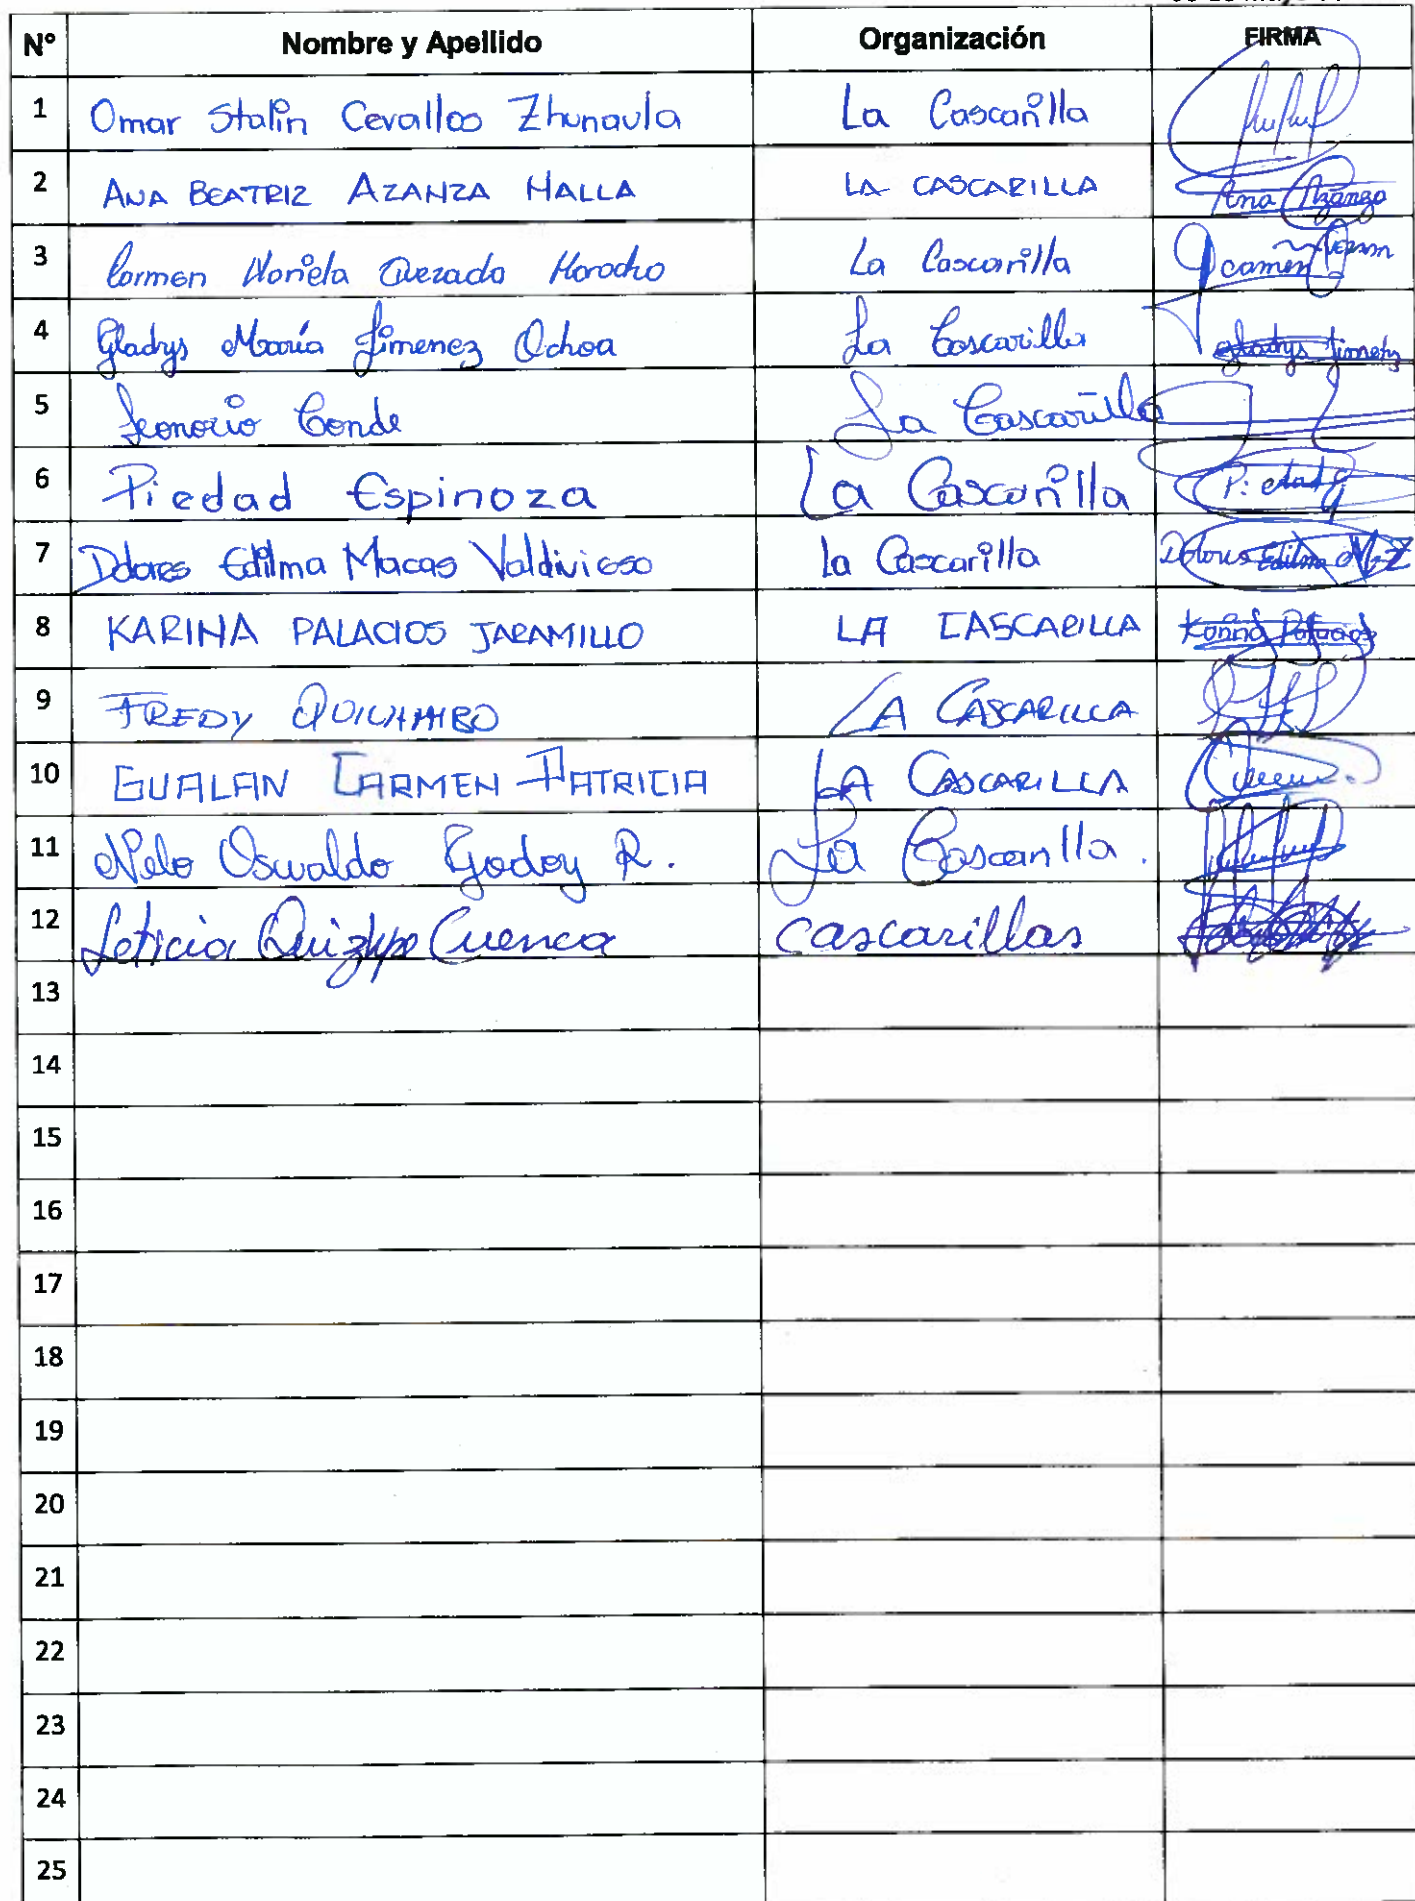 Nº Nombre y Apellido Organización FIRMA
1 Omar Stalin Cevallos Zhunaula La Cascarilla
2 ANA BEATRIZ AZANZA MALLA LA CASCARILLA Ana Azanza
3 Carmen Mariela Quezada Morocho La Cascarilla Carmen
4 Gladys María Jimenez Ochoa La Cascarilla Gladys Jimenez
5 Conde La Cascarilla
6 Piedad Espinoza La Cascarilla Piedad
7 Dolores Edilma Macas Valdivieso la Cascarilla Dolores Edilma
8 KARINA PALACIOS JARAMILLO LA CASCARILLA Karina Palacios
9 FREDY LA CASCARILLA
10 GUALAN CARMEN PATRICIA LA CASCARILLA
11 Oswaldo Godoy R. La Cascarilla.
12 Leticia Quizhpe Cuenca cascarillas
13
14
15
16
17
18
19
20
21
22
23
24
25